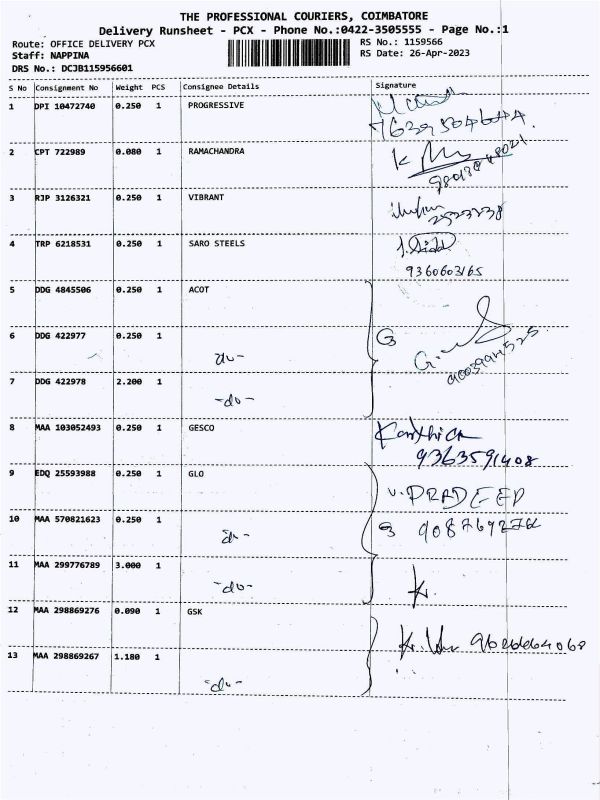 THE PROFESSIONAL COURIERS, COIMBATORE
Delivery Runsheet - PCX - Phone No.:0422-3505555 - Page No.:1
Route: OFFICE DELIVERY PCX
Staff: NAPPINA
DRS No.: DCJB115956601
RS No.: 1159566
RS Date: 26-Apr-2023
S No Consignment No Weight PCS Consignee Details Signature
1 DPI 10472740 0.250 1 PROGRESSIVE
2 CPT 722989 0.080 1 RAMACHANDRA
3 RJP 3126321 0.250 1 VIBRANT
4 TRP 6218531 0.250 1 SARO STEELS
9360603165
5 DDG 4845506 0.250 1 ACOT
6 DDG 422977 0.250 1
-do-
7 DDG 422978 2.200 1
-do-
8 MAA 103052493 0.250 1 GESCO
9363591408
9 EDQ 25593988 0.250 1 GLO
V. PRADEEP
10 MAA 570821623 0.250 1
-do-
11 MAA 299776789 3.000 1
-do-
K.
12 MAA 298869276 0.090 1 GSK
9626664068
13 MAA 298869267 1.180 1
-do-